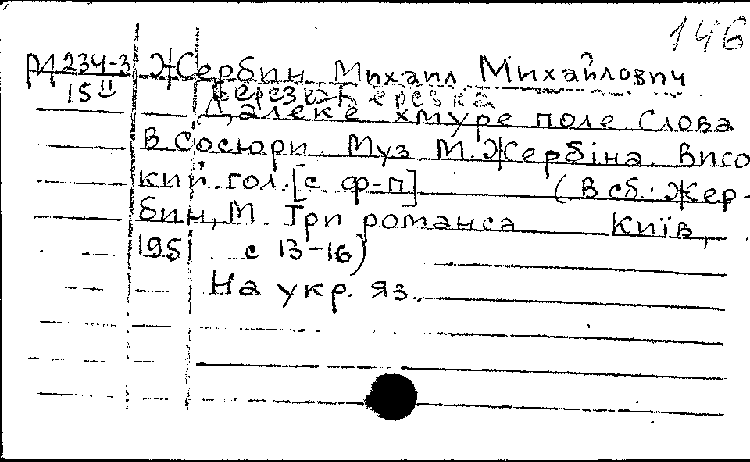 146
М 234-3 Жербин Михаил Михайлович
15 II
Далеке хмуре поле Слова
В Сосюри. Муз М. Жербіна. Висо
кий гол. [с ф-п] (В сб.: Жер-
бин, М. Три романса Київ,
195 с 13-16)
На укр. яз.